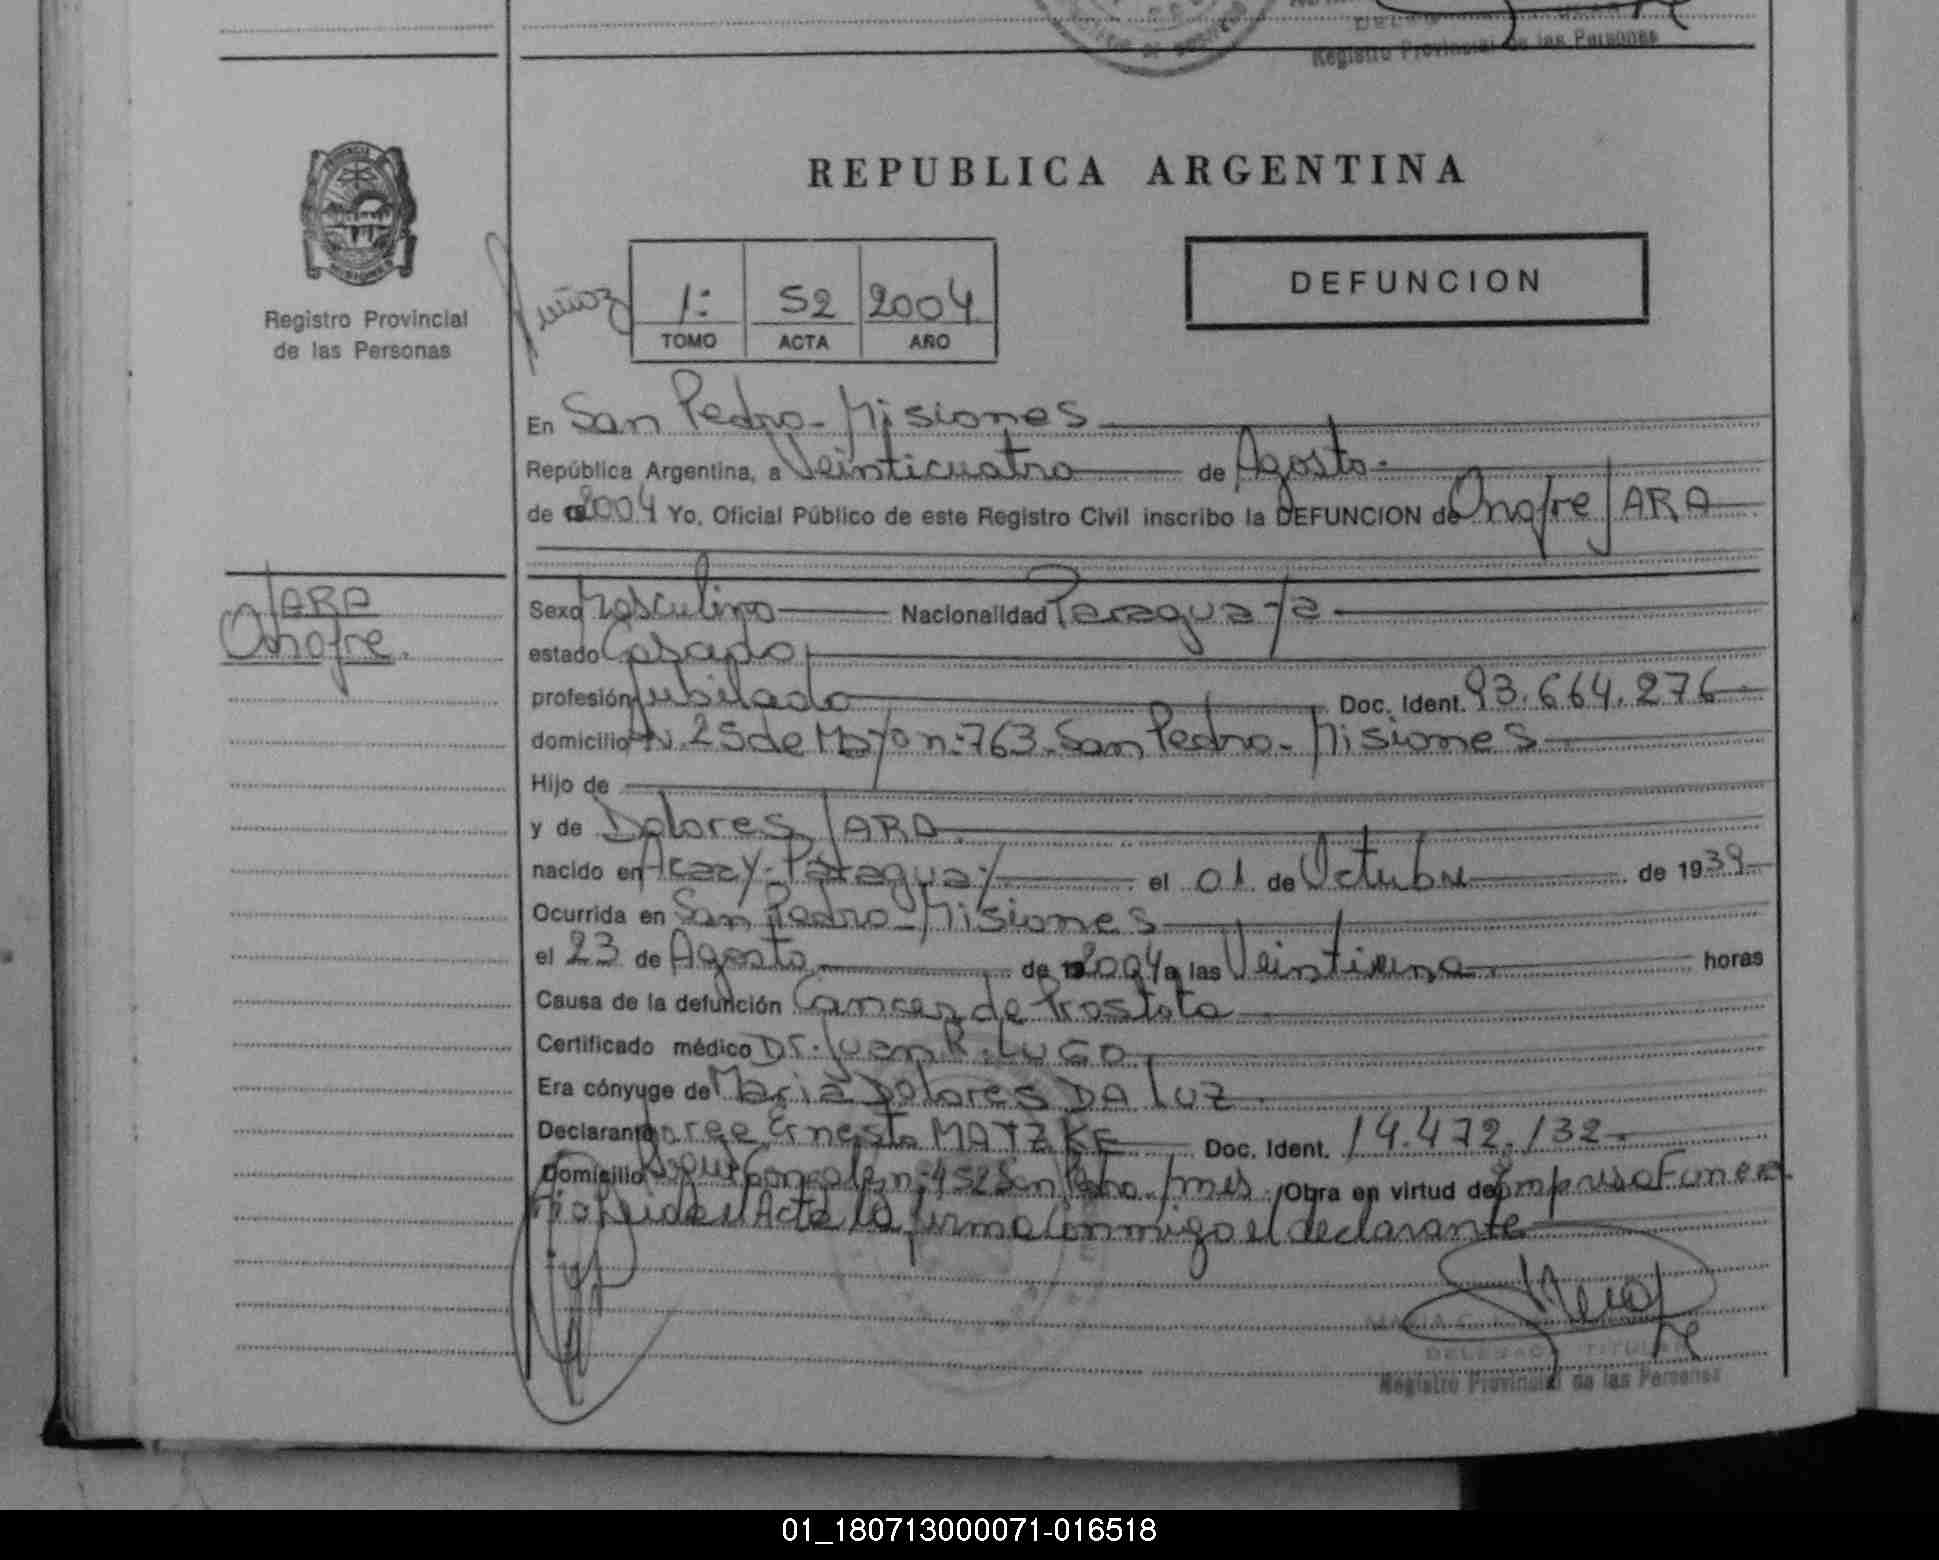 Registro Provincial de las Personas
REPUBLICA ARGENTINA
Registro Provincial
de las Personas
Muñoz
1: 52 2004
TOMO ACTA AÑO
DEFUNCION
En San Pedro - Misiones
República Argentina, a Veinticuatro de Agosto.
de 2004 Yo, Oficial Público de este Registro Civil inscribo la DEFUNCION de Onofre JARA
JARA
Onofre.
Sexo Masculino Nacionalidad Paraguaya
estado Casado
profesión Jubilado Doc. Ident. 93.664.276
domicilio Av. 25 de Mayo n: 763. San Pedro - Misiones
Hijo de
y de Dolores JARA
nacido en Acaay - Paraguay el 01 de Octubre de 1939
Ocurrida en San Pedro - Misiones
el 23 de Agosto de 2004 a las Veintiuna horas
Causa de la defunción Cancer de Prostata
Certificado médico Dr. Juan R. LUGO
Era cónyuge de Maria Dolores DA LUZ
Declarante Jorge Ernesto MATZKE Doc. Ident. 14.472.132
Domicilio n: 452 San Pedro Mnes. Obra en virtud de Empresa Funera
ria Leida el Acta la firma Conmigo el declarante
MARIA C.
DELEGADA TITULAR
Registro Provincial de las Personas
01_180713000071-016518